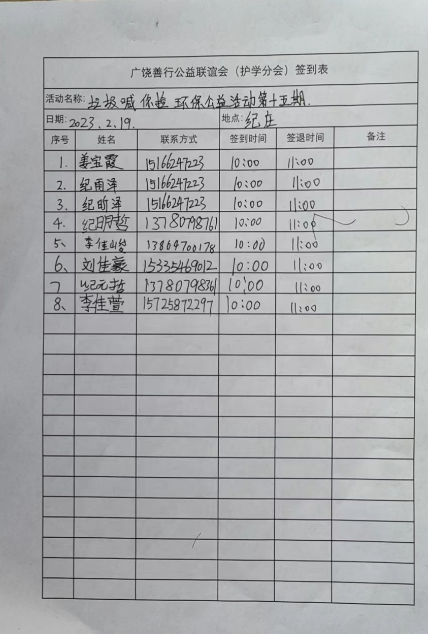 广饶善行公益联谊会（护学分会）签到表
活动名称: 垃圾喊你捡 环保公益活动第十五期.
日期: 2023.2.19. 地点: 纪庄
序号 姓名 联系方式 签到时间 签退时间 备注
1. 姜宝霞 15166247223 10:00 11:00
2. 纪雨泽 15166247223 10:00 11:00
3. 纪昕泽 15166247223 10:00 11:00
4. 纪明哲 13780798761 10:00 11:00
5、 李佳 13864700178 10:00 11:00
6、 刘佳豪 15335469012 10:00 11:00
7 纪元哲 13780798361 10:00 11:00
8、 李佳萱 15725872297 10:00 11:00